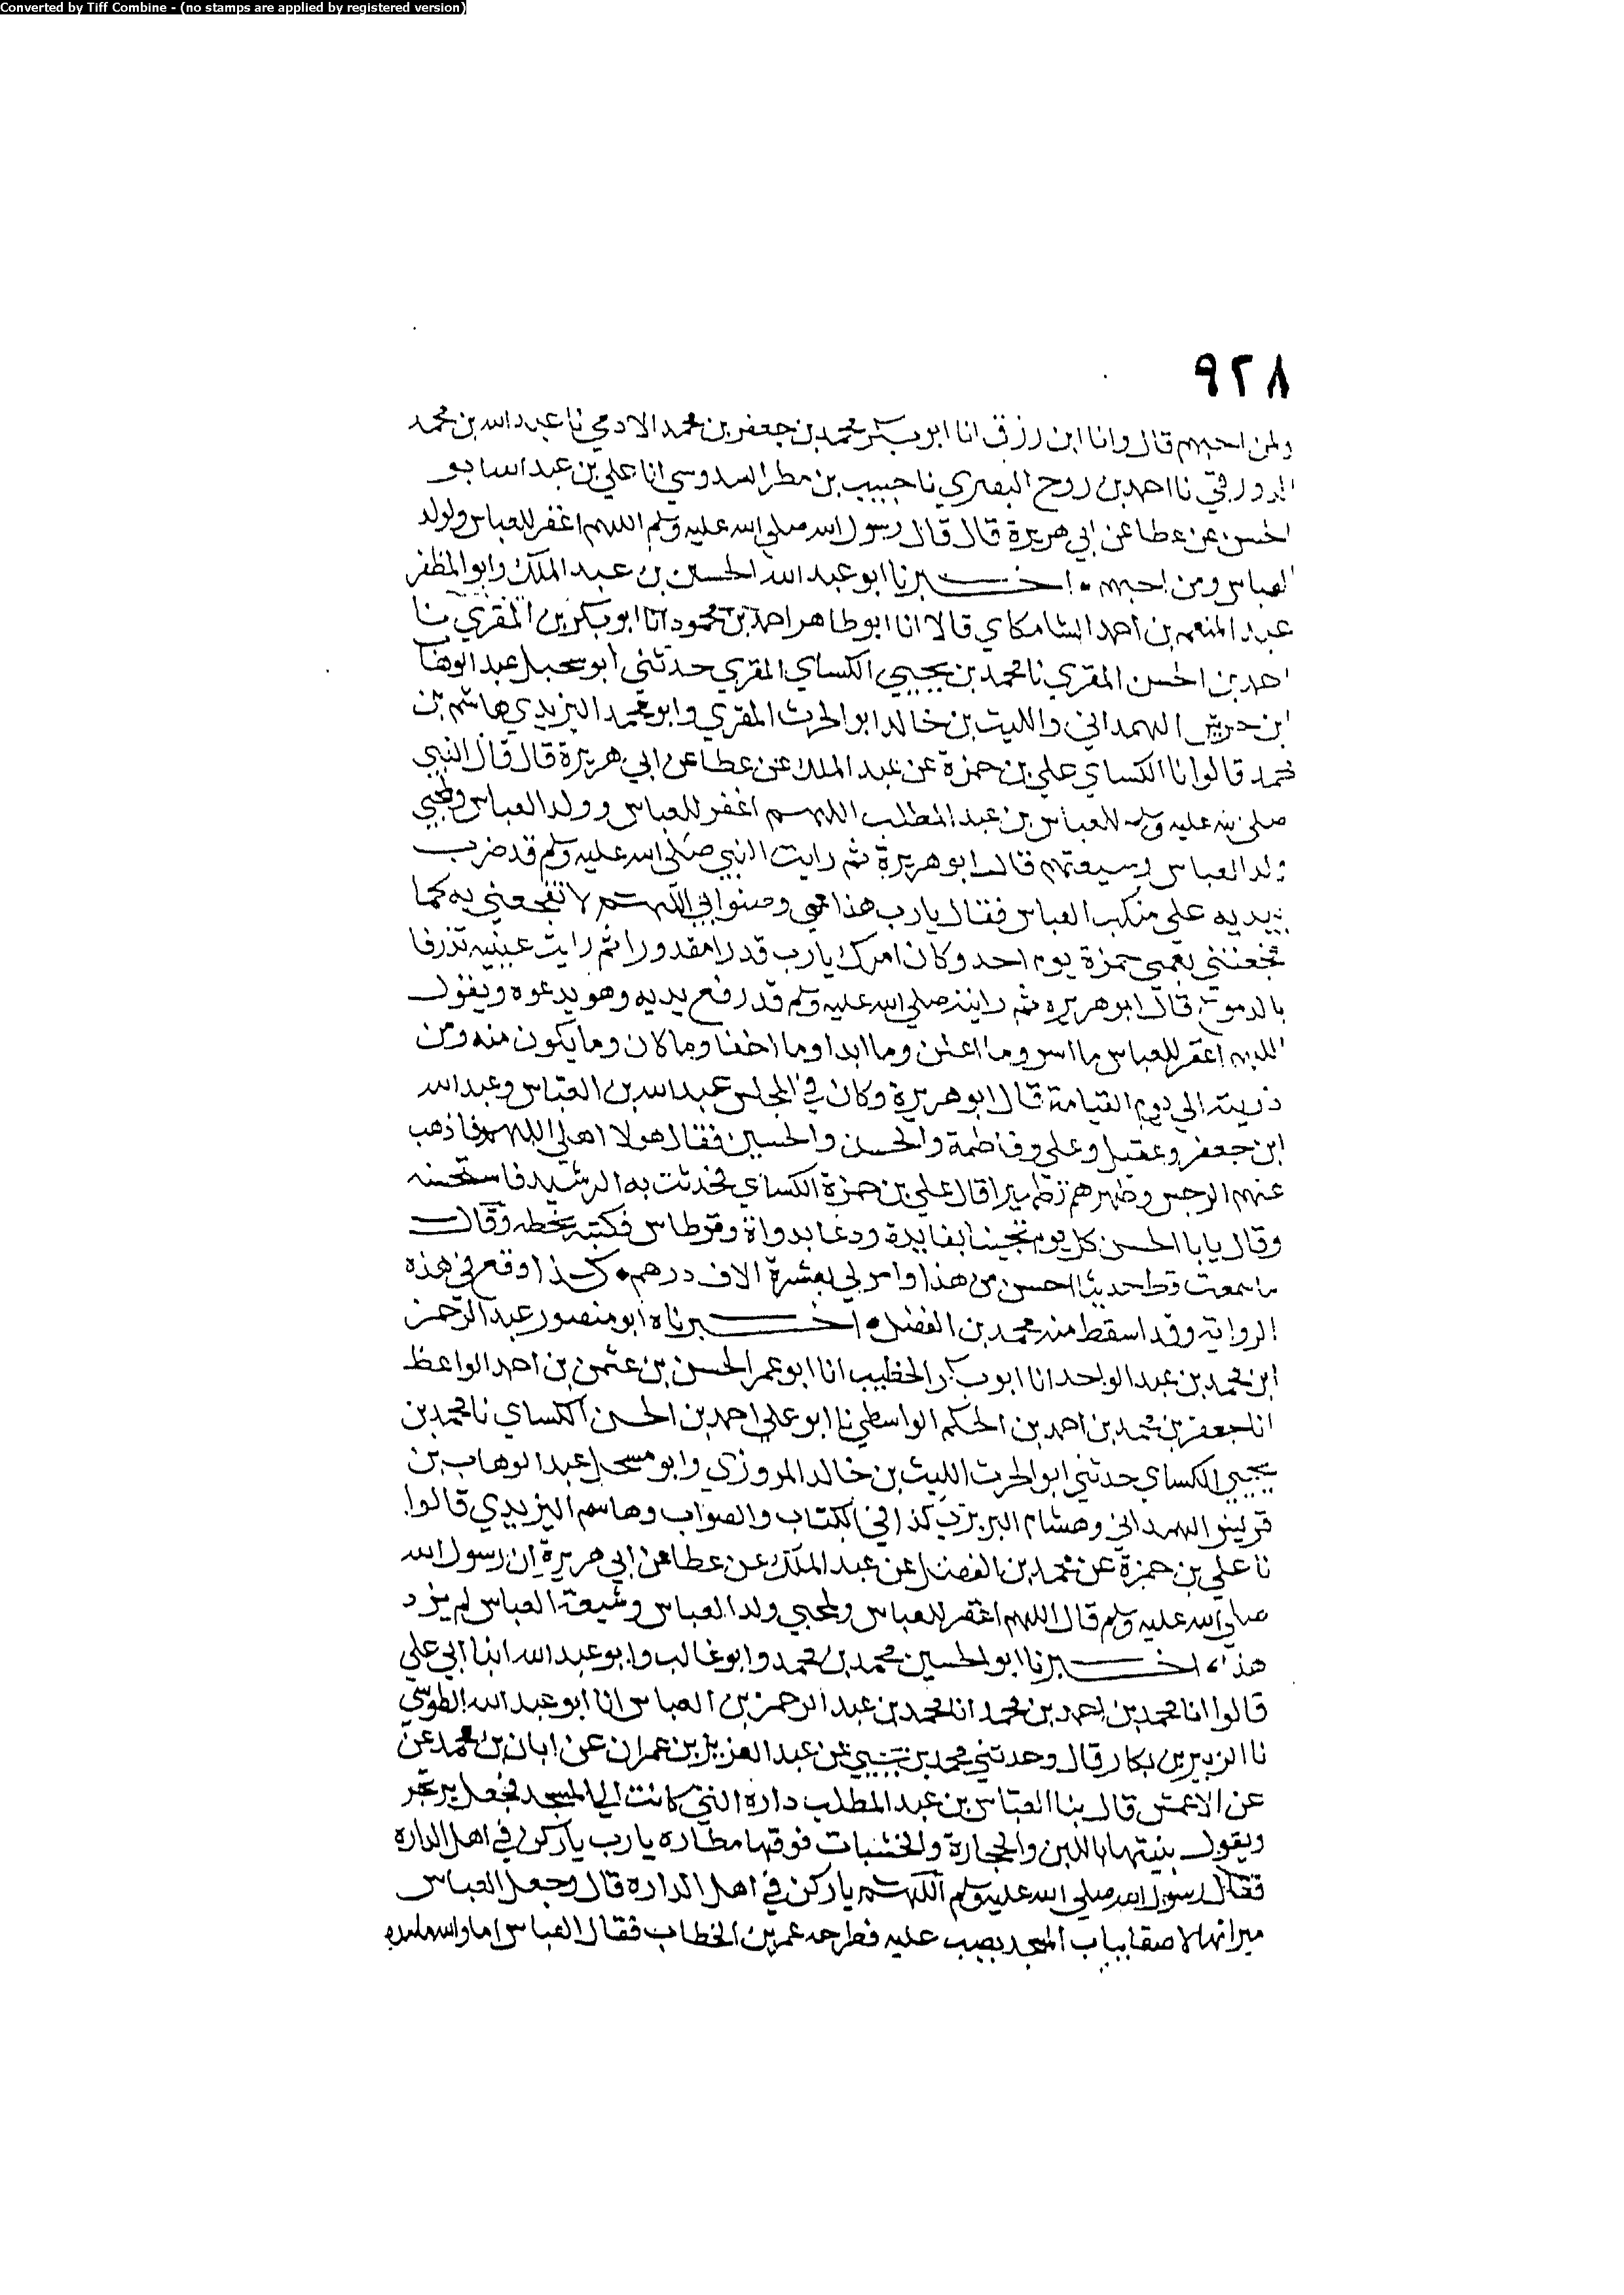 Converted by Tiff Combine - (no stamps are applied by registered version)
٩٢٨
ولمن احبهم قال وانا ابن رزق انا ابو بكر محمد بن جعفر بن محمد الادمي نا عبد الله بن محمد
الدورقي نا احمد بن روح البصري نا حبيب بن مطر السدوسي انا علي بن عبد الله ابو
الحسن عن عطا عن ابي هريرة قال قال رسول الله صلى الله عليه وسلم اللهم اغفر للعباس ولولد
العباس ومن احبهم • اخبرنا ابو عبد الله الحسين بن عبد الملك وابو المظفر
عبد المنعم بن احمد الشامكاي قالا انا ابو طاهر احمد بن محمود انا ابو بكر بن المقري نا
احمد بن الحسن المقري نا محمد بن يحيي الكساي المقري حدثني ابو سحل عبد الوهاب
ابن حريش الهمداني والليث بن خالد ابو الحرث المقري وابو محمد اليزيدي هاشم بن
محمد قالوا نا الكساي علي بن حمزة عن عبد الملك عن عطا عن ابي هريرة قال قال النبي
صلى الله عليه وسلم للعباس بن عبد المطلب اللهم اغفر للعباس وولد العباس ولمحبي
ولد العباس وسيعتهم قال ابو هريرة ثم رايت النبي صلى الله عليه وسلم قد ضرب
بيديه على منكب العباس فقال يا رب هذا عمي وصنو ابي اللهم لا تفجعني به كما
فجعتني بعمي حمزة يوم احد وكان امرك يا رب قدرا مقدورا ثم رايت عينيه تذرفا
بالدموع قال ابو هريره ثم رايته صلى الله عليه وسلم قد رفع يديه وهو يدعوه ويقول
اللهم اغفر للعباس ما اسر وما اعلن وما ابدا وما اخفا وما كان وما يكون منه ومن
ذريته الي يوم القيامة قال ابو هريرة وكان في المجلس عبد الله بن العباس وعبد الله
ابن جعفر وعقيل وعلي وفاطمة والحسن والحسين فقال هولا اهلي اللهم فاذهب
عنهم الرجس وطهرهم تطهيرا قال علي بن حمزة الكساي فحدثت به الرشيد فاستحسنه
وقال يا با الحسن كل يوم تجينا بفايدة ودعا بدواة وقرطاس فكتبه بخطه وقال
ما سمعت قط حديثا احسن من هذا وامر لي بعشرة الاف درهم • كذا وقع في هذه
الرواية وقد اسقط منه محمد بن الفضل • اخبرناه ابو منصور عبد الرحمن
ابن محمد بن عبد الواحد انا ابو بكر الخطيب انا ابو عمر الحسن بن عثمن بن احمد الواعظ
انا جعفر بن محمد بن احمد بن الحكم الواسطي نا ابو علي احمد بن الحسن الكساي نا محمد بن
يحيي الكساي حدثني ابو الحرث الليث بن خالد المروزي وابو مسحل عبد الوهاب بن
الهمداني وهشام البربري كذا في الكتاب والصواب وهاسم اليزيدي قالوا
نا علي بن حمزة عن محمد بن الفضل عن عبد الملك عن عطا عن ابي هريرة ان رسول الله
صلى الله عليه وسلم قال اللهم اغفر للعباس ولمحبي ولد العباس وشيعة العباس لم يزد
هذا، اخبرنا ابو الحسين محمد بن محمد وابو غالب وابو عبد الله ابنا ابي علي
قالوا انا محمد بن احمد بن محمد انا محمد بن عبد الرحمن بن العباس انا ابو عبد الله الطوسي
نا الزبير بن بكار قال وحدثني محمد بن يحيي عن عبد العزيز بن عمران عن ابان بن محمد عن
عن الاعمش قال بنا العباس بن عبد المطلب داره التي كانت الي المسجد فجعل يرتجز
ويقول بنيتها باللبن والحجارة والخشبات فوقها مطاره يا رب باركن في اهل الداره
فقال رسول الله صلى الله عليه وسلم اللهم باركن في اهل الداره قال وجعل العباس
ميزابها لاصقا بباب المسجد يصب عليه فطرحه عمر بن الخطاب فقال العباس اما والله ما شده